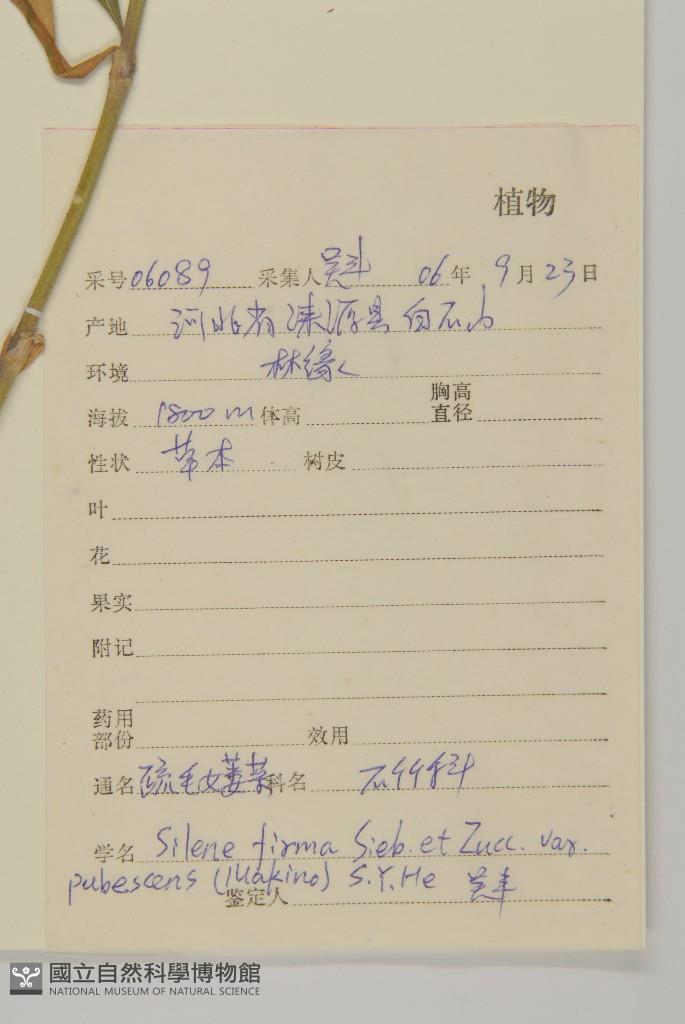 植物
采号 06089 采集人 06年 9月23日
产地 河北省涞源县白石山
环境 林缘
海拔 1800m 体高 胸高直径
性状 草本 树皮
叶
花
果实
附记
药用部份 效用
通名 疏毛女萎菜 科名 石竹科
学名 Silene firma Sieb. et Zucc. var.
pubescens (Makino) S.Y.He
鉴定人
國立自然科學博物館
NATIONAL MUSEUM OF NATURAL SCIENCE